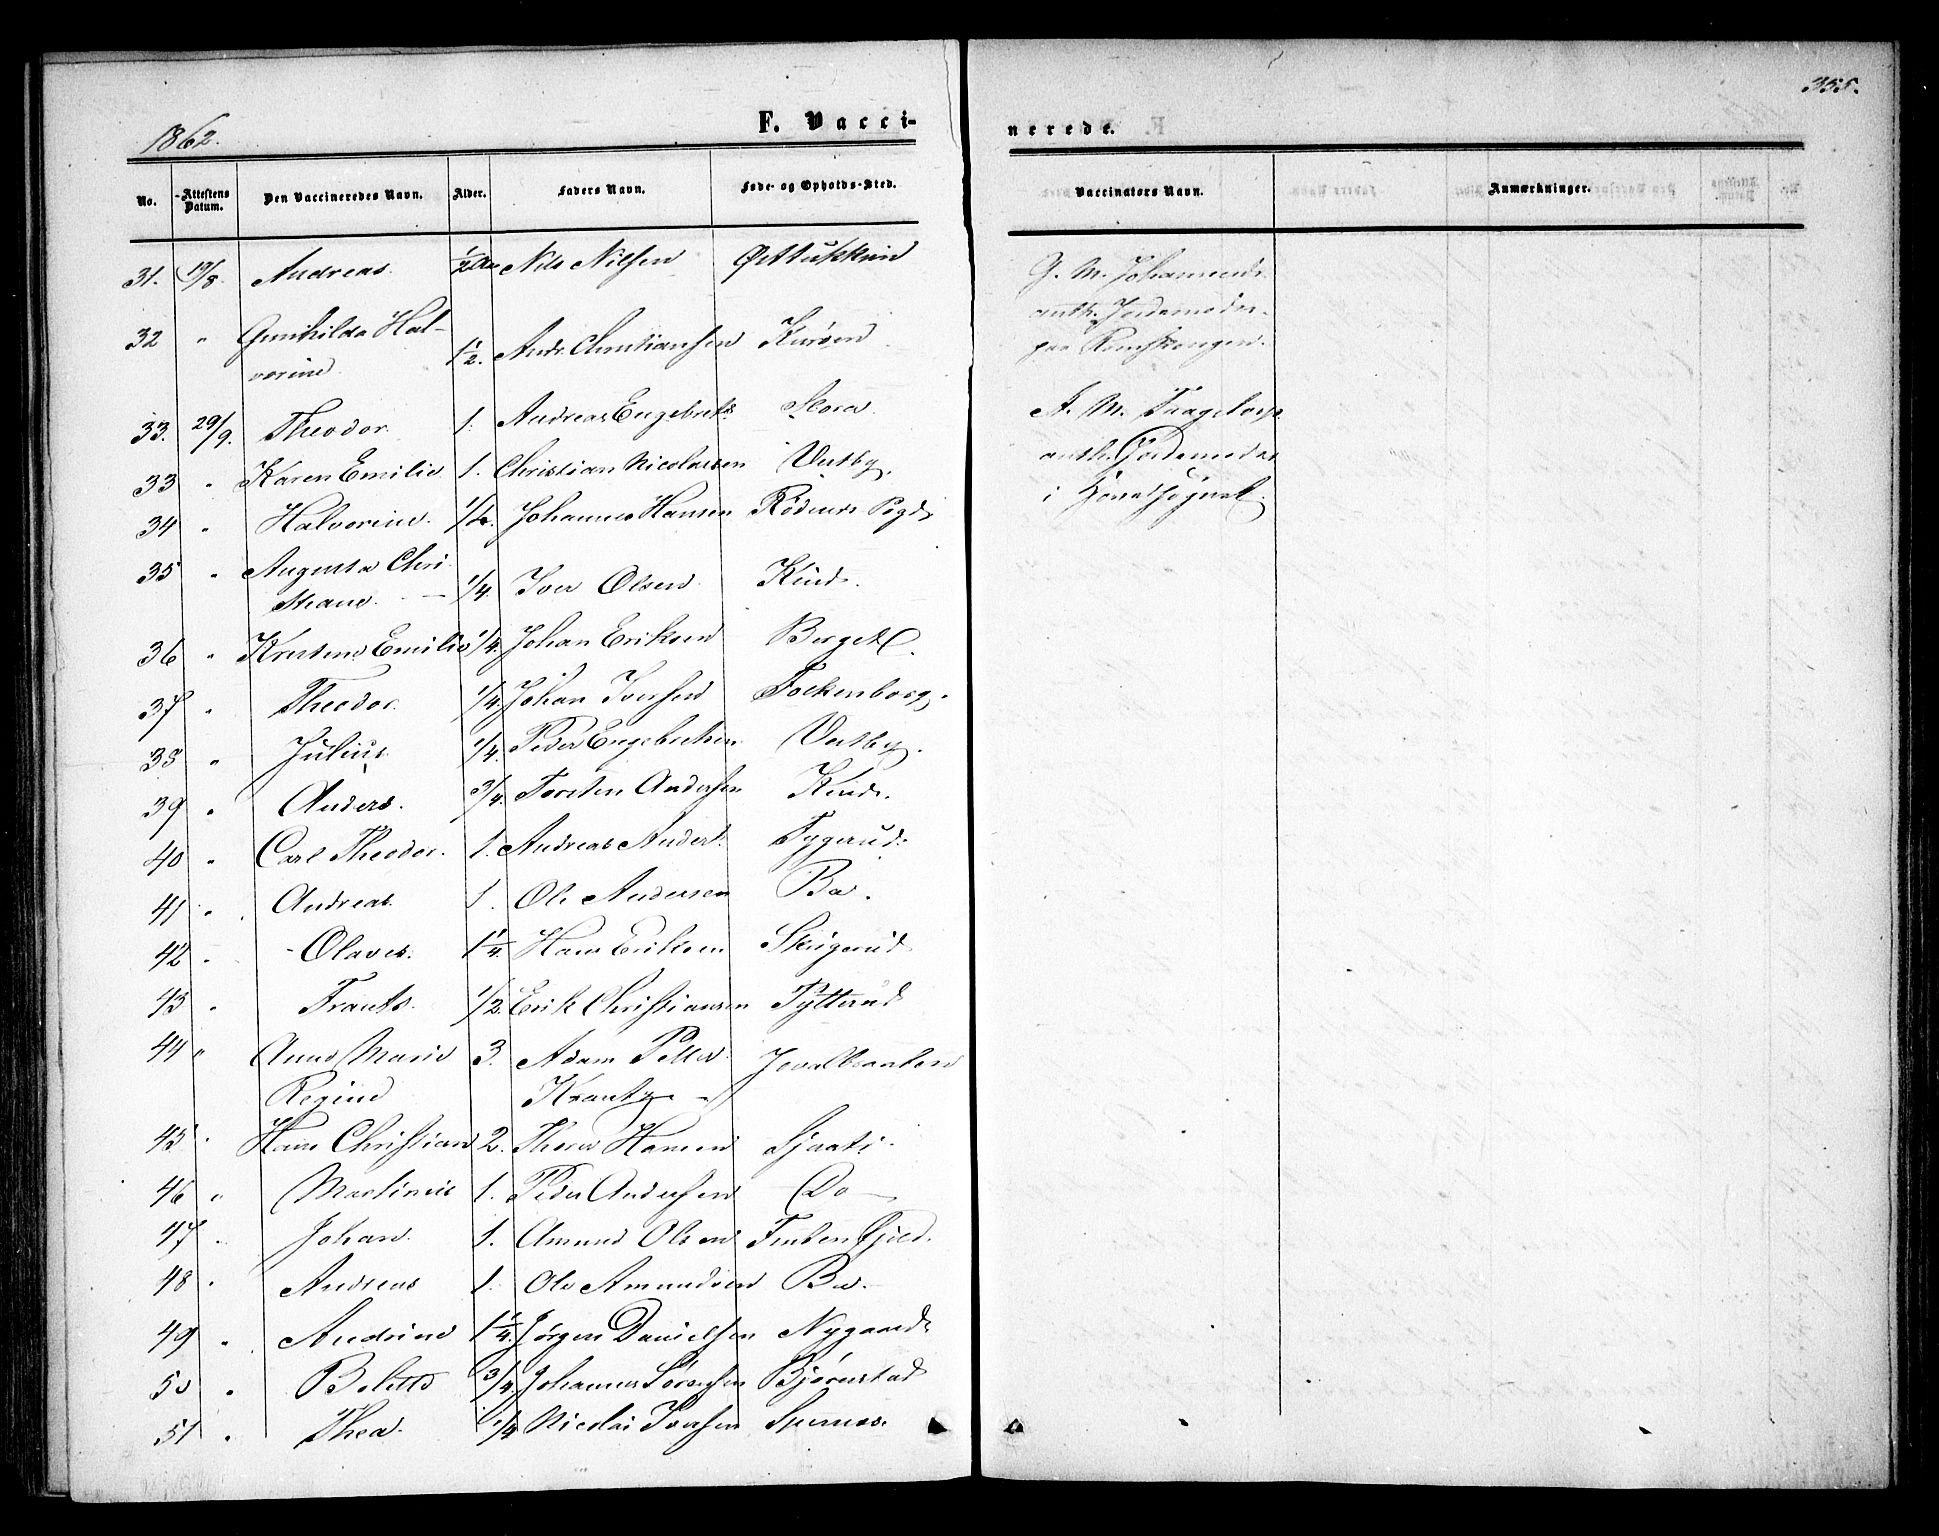 355.
1862.
F. Vacci-
nerede.
No.
Attestens Datum.
Den Vaccineredes Navn.
Alder.
Faders Navn.
Føde- og Opholds-Sted.
Vaccinators Navn.
Anmærkninger.
31. 19/8. Andreas. 1/2 Nils Nilsen
32 " Gunhilda Hal-
vorine 1 1/2. Andr. Christiansen Kursen
33. 29/9. Theodor. 1. Andreas Engebrets. Slora.
33 " Karen Emilie 1. Christian Nicolassen Vestby.
34 " Halvorine. 1/4. Johannes Hansen Rødenes Pgd.
35 " Augusta Chri-
stiane. 1/4. Iver Olsen Kind.
36 " Kristine Emilie 1/4. Johan Eriksen Berget.
37 " Theodor. 1/4. Johan Iversen Fockenborg.
38 " Julius. 1/4. Peder Engebretsen Vestby.
39 " Anders. 3/4. Torsten Andersen Kind.
40 " Carl Theodor. 1. Andreas Anders. Tygerud.
41 " Andreas. 1. Ole Andersen Bø.
42 " Olaves. 1 1/4. Hans Eriksen Skigerud
43 " Frants. 1/2. Erik Christiansen Tytterud
44 " Anne Marie 3. Adam Petter
Regine Krantz
45 " Hans Christian 2. Thore Hansen
46 " Martinius 1. Peder Andersen Do
47 " Johan. 1. Amund Olsen
48 " Andreas 1. Ole Amundsen Bø.
49 " Andrine 1 1/4. Jørgen Danielsen Nygaard.
50 " Bolette 3/4. Johannes Sørensen Bjørnstad
51 " Thea. 1/4 Nicolai Iversen
G. M. Johannesd.
auth. Jordemoder
paa Rømskougen.
A. M. Tragetorp
auth. Jordemoder
i Hovedsognet.